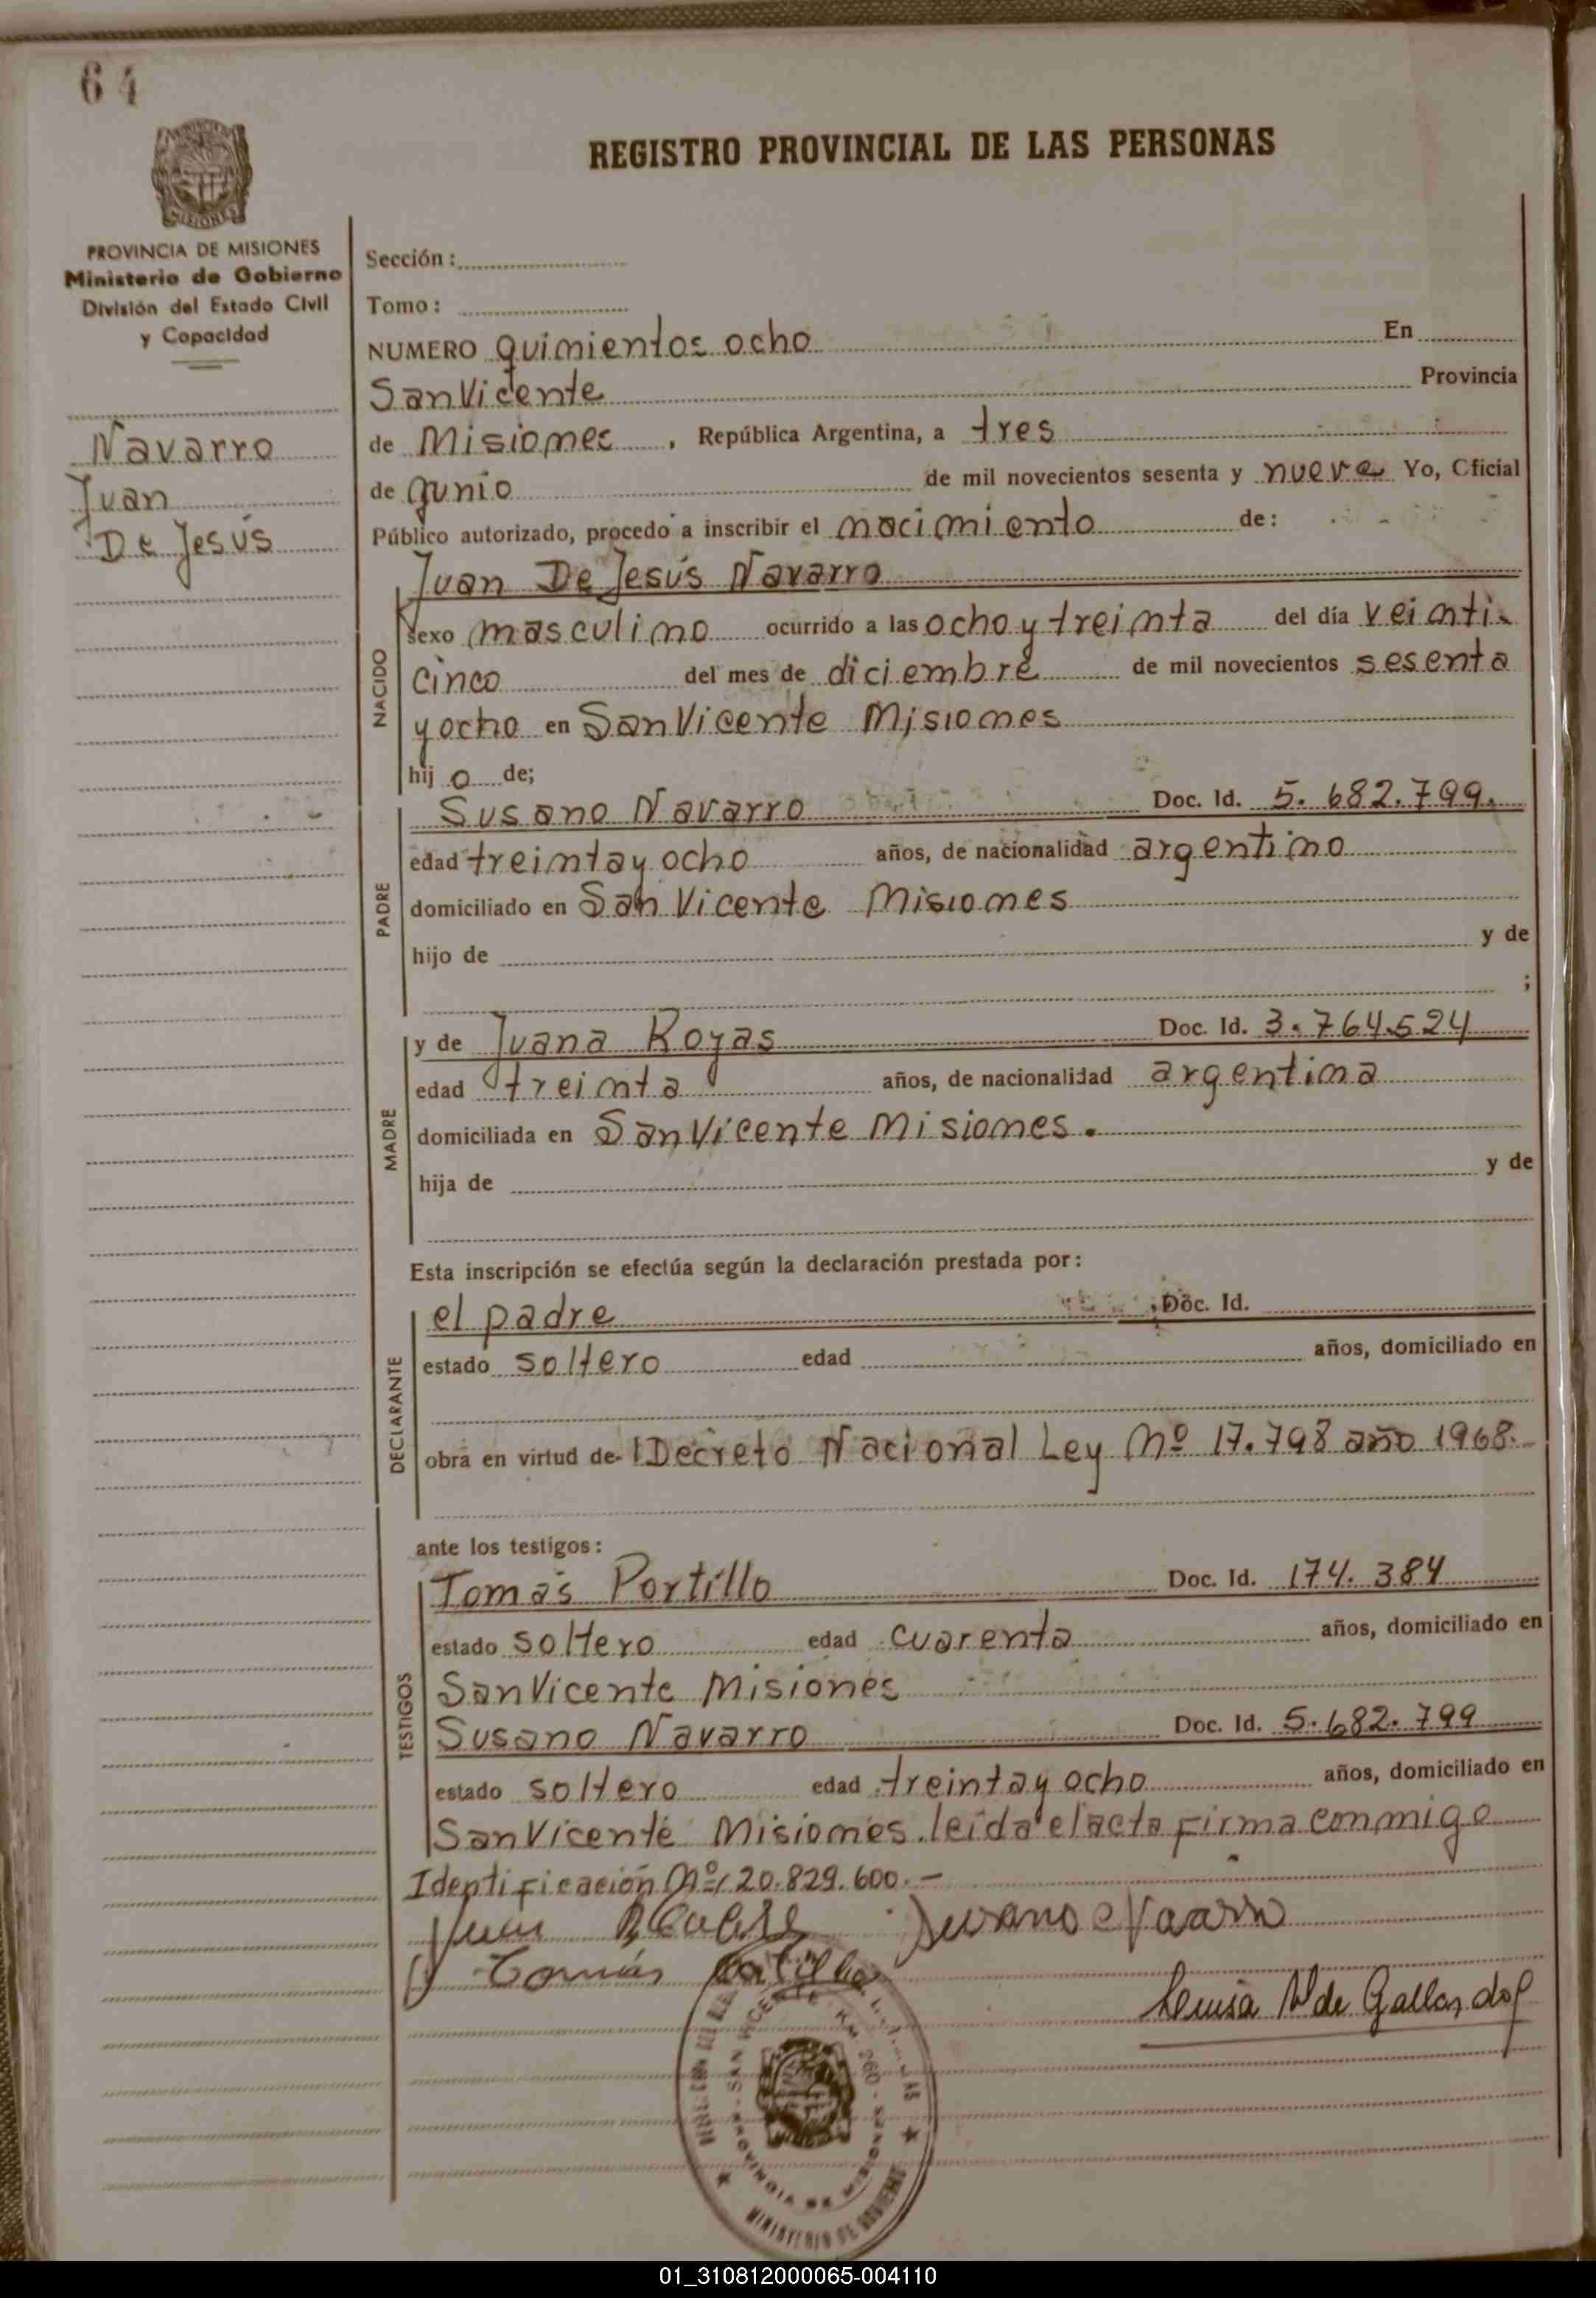 64
REGISTRO PROVINCIAL DE LAS PERSONAS
MISIONES
PROVINCIA DE MISIONES
Ministerio de Gobierno
División del Estado Civil
y Capacidad
Navarro
Juan
De Jesús
Sección:
Tomo:
NUMERO quinientos ocho En
San Vicente Provincia
de Misiones, República Argentina, a tres
de junio de mil novecientos sesenta y nueve Yo, Oficial
Público autorizado, procedo a inscribir el nacimiento de:
NACIDO
Juan De Jesús Navarro
sexo masculino ocurrido a las ocho y treinta del día veinti-
cinco del mes de diciembre de mil novecientos sesenta
y ocho en San Vicente Misiones
hij o de;
PADRE
Susano Navarro Doc. Id. 5.682.799.
edad treinta y ocho años, de nacionalidad argentino
domiciliado en San Vicente Misiones
hijo de y de
;
MADRE
y de Juana Royas Doc. Id. 3.764.524
edad treinta años, de nacionalidad argentina
domiciliada en San Vicente Misiones.
hija de y de
Esta inscripción se efectúa según la declaración prestada por:
DECLARANTE
el padre Doc. Id.
estado soltero edad años, domiciliado en
obra en virtud de Decreto Nacional Ley Nº 17.798 año 1968.-
ante los testigos:
TESTIGOS
Tomás Portillo Doc. Id. 174.384
estado soltero edad cuarenta años, domiciliado en
San Vicente Misiones
Susano Navarro Doc. Id. 5.682.799
estado soltero edad treinta y ocho años, domiciliado en
San Vicente Misiones. leida el acta firma conmigo
Identificación Nº 20.829.600.-
Susano Navarro
Tomás Portillo
Luisa N de Gallardo
SAN VICENTE KM 260
PROVINCIA DE MISIONES
MINISTERIO DE GOBIERNO
01_310812000065-004110